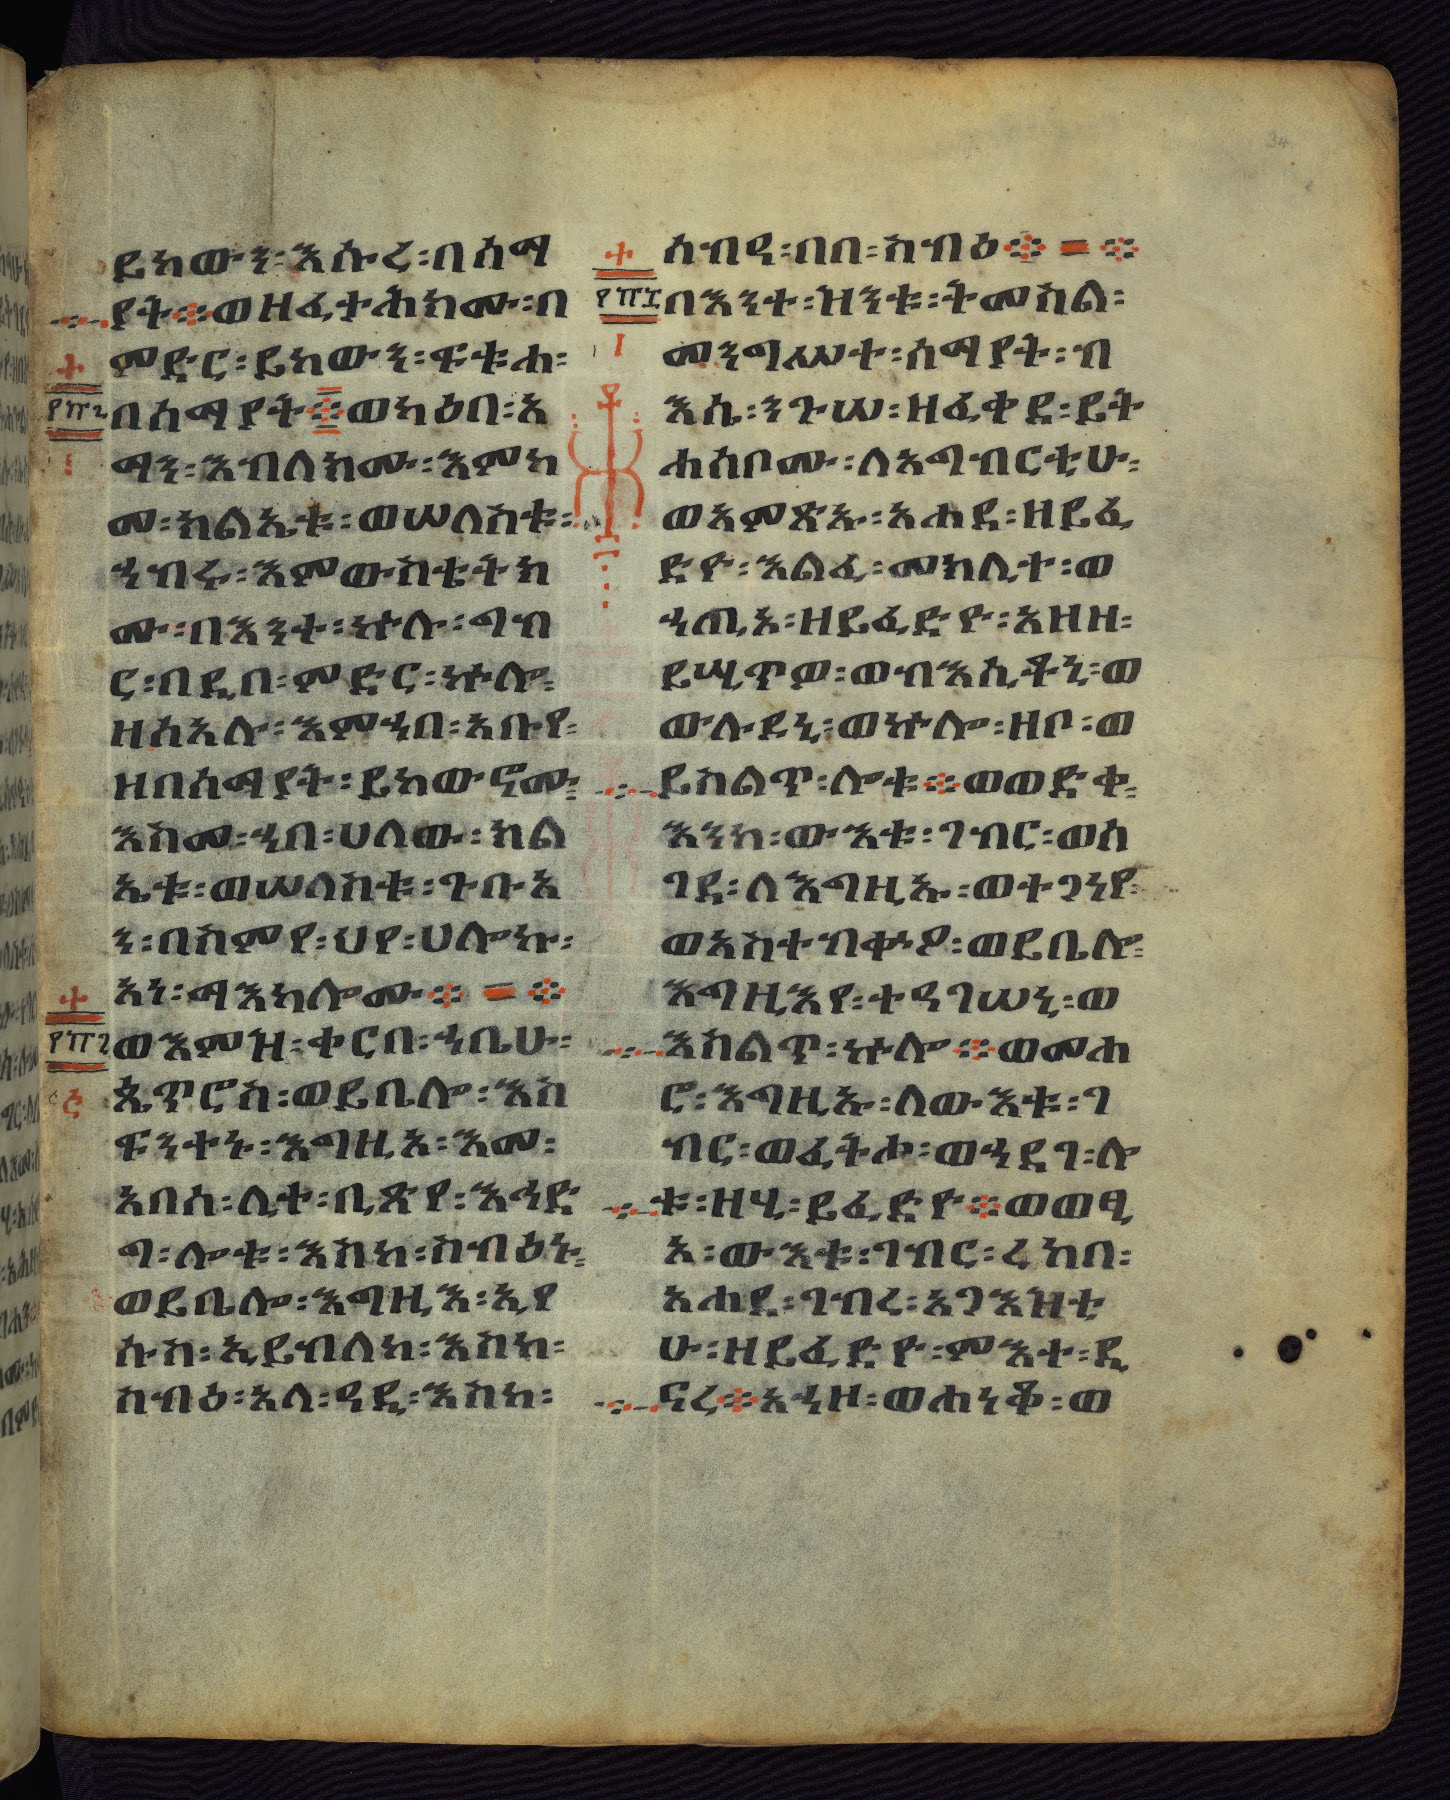 ይከውን፡እሱረ፡በሰማ
ያት፨ወዘፈታሕክሙ፡በ
ምድር፡ይከውን፡ፍቱሐ፡
በሰማያት፨ወካዕበ፡አ
ማን፡እብለክሙ፡እምከ
መ፡ክልኤቱ፡ወሠለስቱ፡
ኀብሩ፡እምውስቴትክ
ሙ፡በእንተ፡ኵሉ፡ግብ
ር፡በዲበ፡ምድር፡ኵሎ፡
ዘሰአሉ፡እምኀበ፡አቡየ፡
ዘበሰማያት፡ይከውኖሙ፡
እስመ፡ኀበ፡ሀለው፡ክል
ኤቱ፡ወሠለስቱ፡ጉቡአ
ን፡በስምየ፡ህየ፡ሀሎኩ፡
አነ፡ማእከሎሙ፨ ፨
ወእምዝ፡ቀርበ፡ኀቤሁ፡
ጴጥሮስ፡ወይቤሎ፡እስ
ፍንተኑ፡እግዚአ፡እመ፡
አበሰ፡ሊተ፡ቢጽየ፡እኅድ
ግ፡ሎቱ፡እስከ፡ስብዕኑ፡
ወይቤሎ፡እግዚእ፡ኢየ
ሱስ፡ኢይብለከ፡እስከ፡
ስብዕ፡አላ፡ዓዲ፡እስከ፡
34
ሰብዓ፡በበ፡ስብዕ፨ ፨
በእንተ፡ዝንቱ፡ትመስል፡
መንግሥተ፡ሰማያት፡ብ
እሲ፡ንጉሠ፡ዘፈቀደ፡ይት
ሐሰቦሙ፡ለአግብርቲሁ፡
ወአምጽኡ፡አሐደ፡ዘይፈ
ድዮ፡እልፈ፡መክሊተ፡ወ
ኀጢአ፡ዘይፈድዮ፡አዘዘ፡
ይሢጥዎ፡ወብእሲቶኒ፡ወ
ውሉደኒ፡ወኵሎ፡ዘቦ፡ወ
ይስልጥ፡ሎቱ፨ወወድቀ፡
እንከ፡ውእቱ፡ገብር፡ወሰ
ገደ፡ለእግዚኡ፡ወተጋነየ፡
ወአስተብቍዖ፡ወይቤሎ፡
እግዚእየ፡ተዓገሠኒ፡ወ
እስልጥ፡ኵሎ፨ወመሐ
ሮ፡እግዚኡ፡ለውእቱ፡ገ
ብር፡ወፈትሖ፡ወኀደገ፡ሎ
ቱ፡ዘሂ፡ይፈድዮ፨ወወፂ
አ፡ውእቱ፡ገብር፡ረከበ፡
አሐደ፡ገብረ፡አጋእዝቲ
ሁ፡ዘይፈድዮ፡ምእተ፡ዲ
ናረ፨አኀዞ፡ወሐነቆ፡ወ